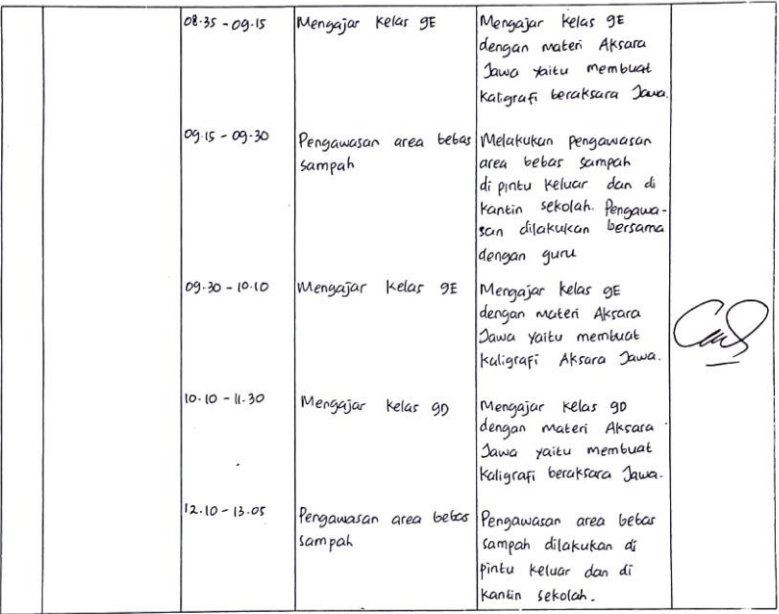 08.35 - 09.15
Mengajar Kelas 9E
Mengajar Kelas 9E
dengan materi Aksara
Jawa yaitu membuat
Kaligrafi beraksara Jawa.
09.15 - 09.30
Pengawasan area bebas
Sampah
Melakukan pengawasan
area bebas sampah
di pintu keluar dan di
kantin sekolah. Pengawa-
san dilakukan bersama
dengan guru
09.30 - 10.10
Mengajar Kelas 9E
Mengajar Kelas 9E
dengan materi Aksara
Jawa yaitu membuat
Kaligrafi Aksara Jawa.
10.10 - 11.30
Mengajar Kelas 9D
Mengajar Kelas 9D
dengan materi Aksara
Jawa yaitu membuat
Kaligrafi beraksara Jawa.
12.10 - 13.05
Pengawasan area bebas
Sampah
Pengawasan area bebas
sampah dilakukan di
pintu keluar dan di
kantin sekolah.